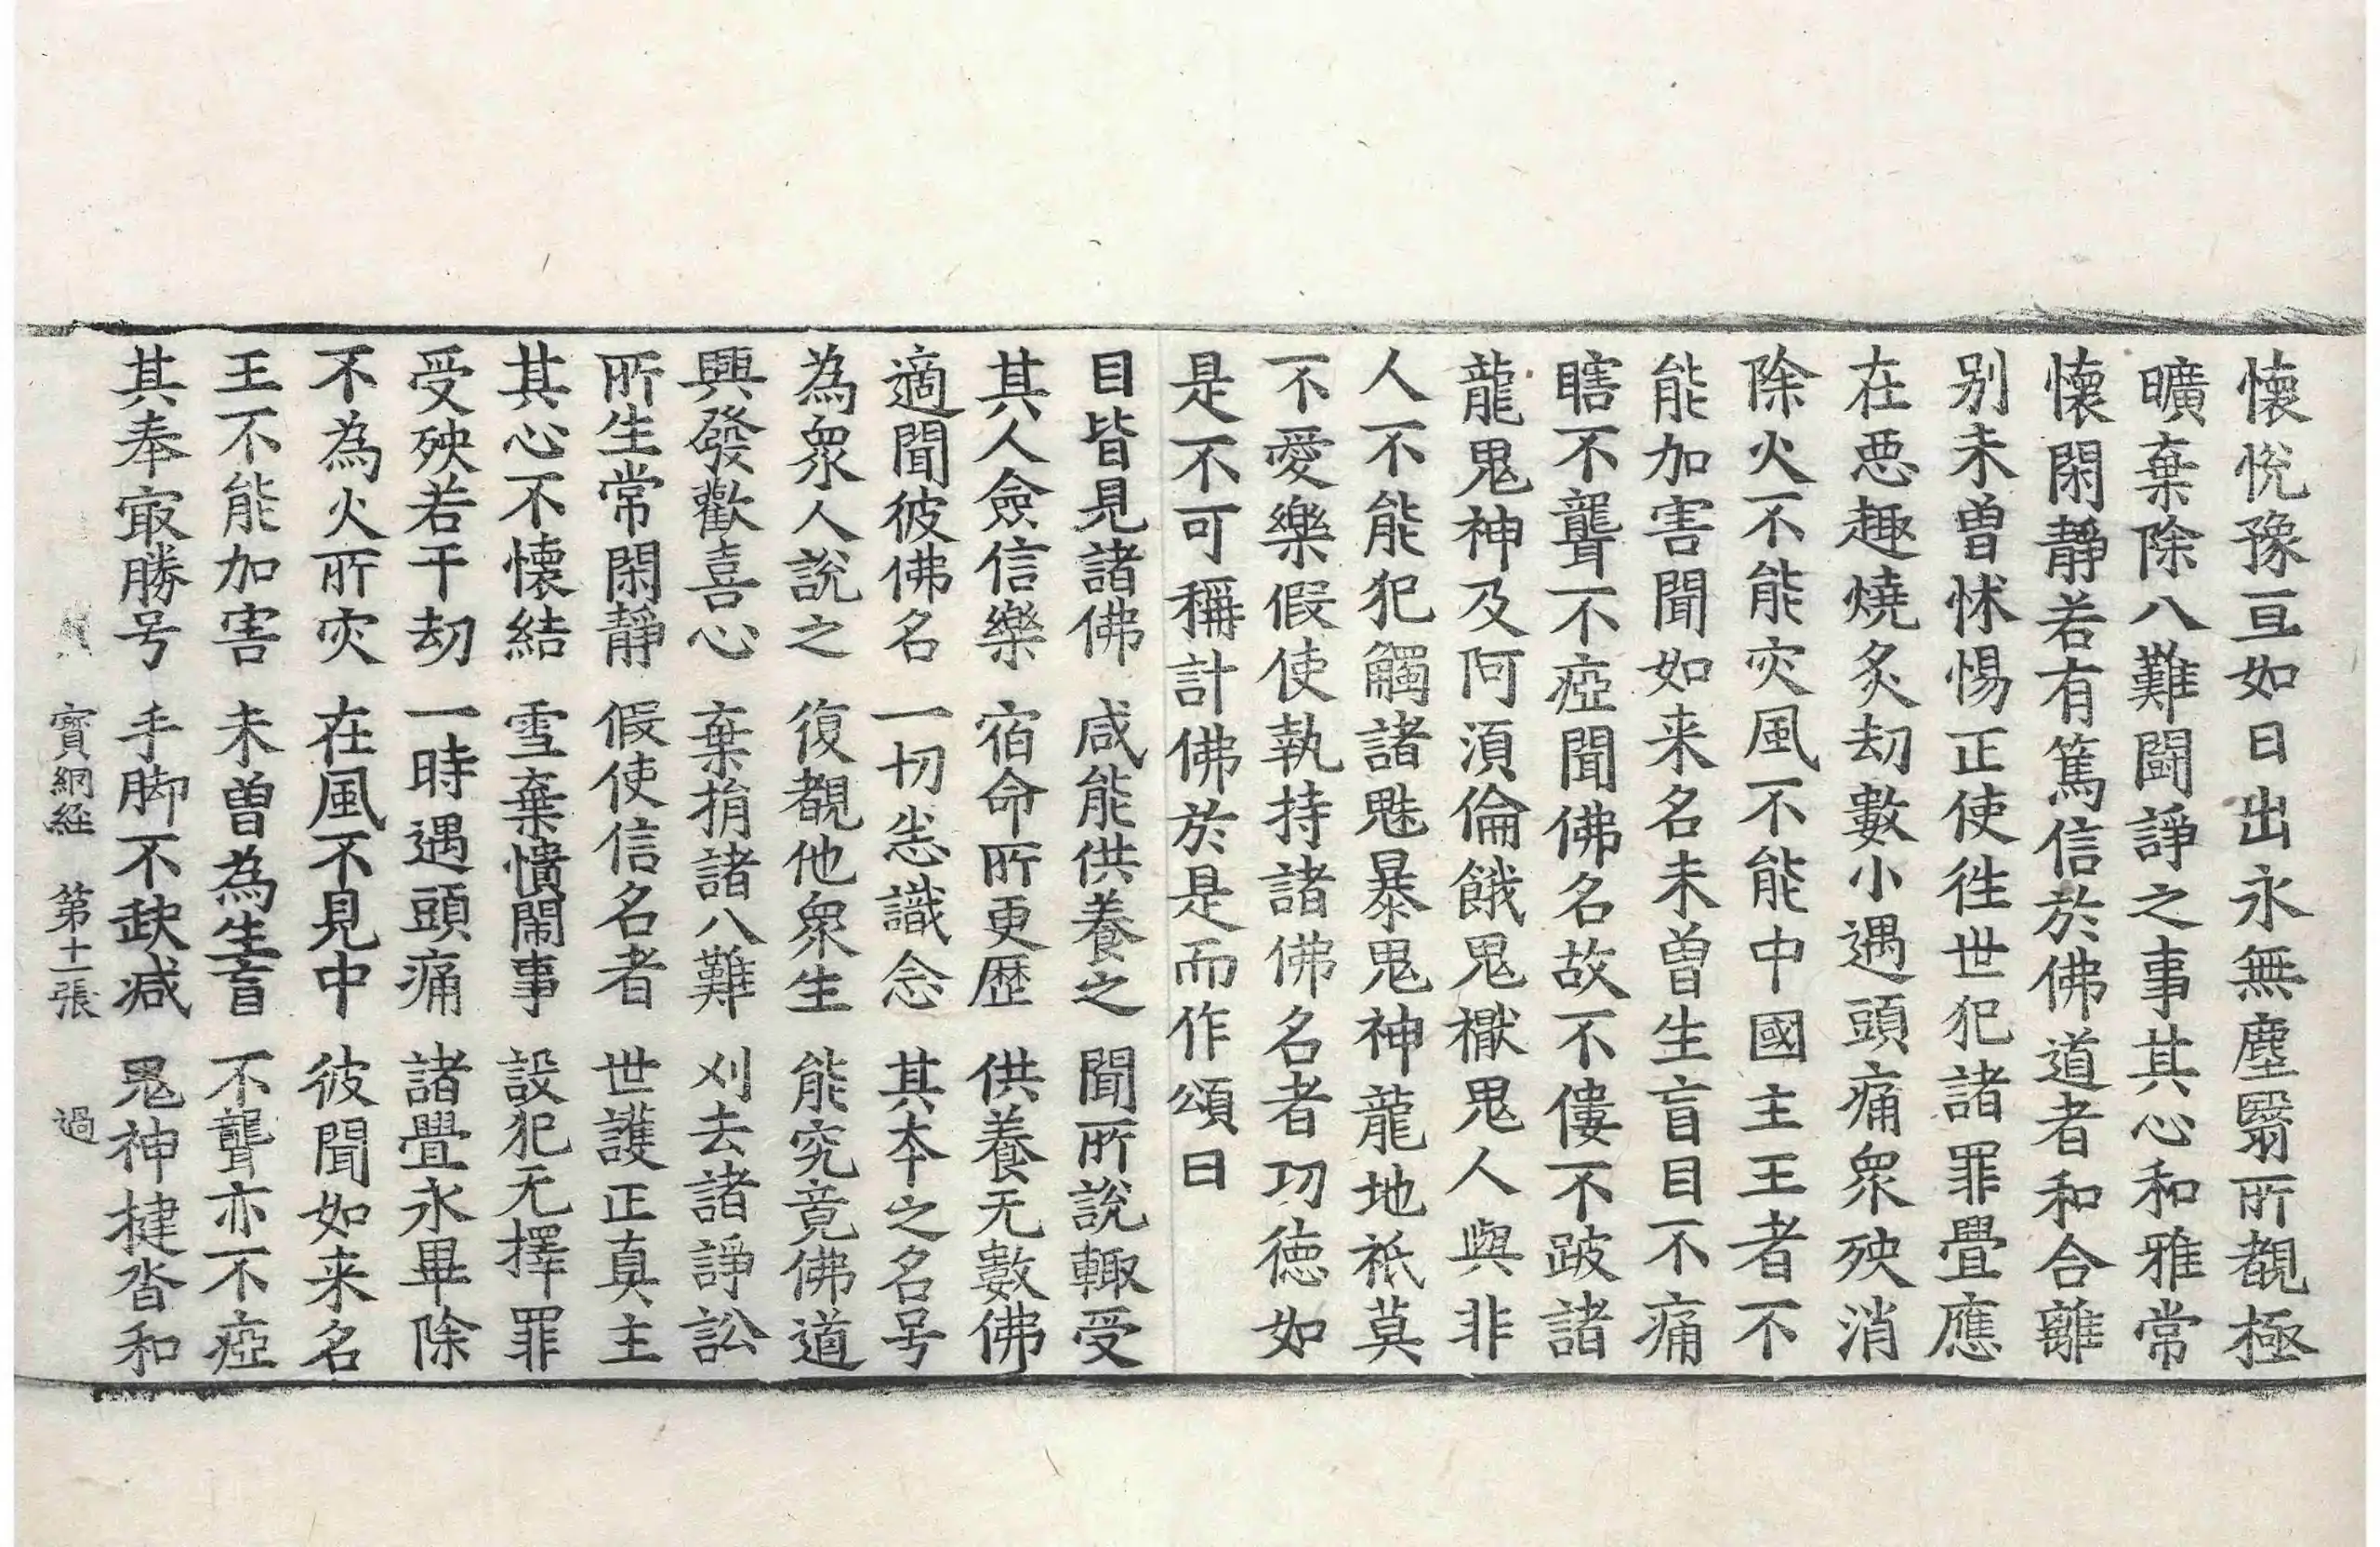 懷悅豫亘如日出永無塵翳所覩極
曠棄除八難鬪諍之事其心和雅常
懷閑靜若有篤信於佛道者和合離
别未曽怵惕正使徃世犯諸罪舋應
在惡趣燒炙劫數小遇頭痛衆殃消
除火不能灾風不能中國主王者不
能加害聞如来名未曽生盲目不痛
瞎不聾不瘂聞佛名故不僂不跛諸
龍鬼神及阿湏倫餓鬼檝鬼人與非
人不能犯觸諸魅暴鬼神龍地祇莫
不愛樂假使執持諸佛名者功德如
是不可稱計佛於是而作頌曰
目皆見諸佛　咸能供養之　聞所說輙受
其人僉信樂　宿命所更歷　供養无數佛
適聞彼佛名　一切恙識念　其本之名号
為衆人說之　復覩他衆生　能究竟佛道
興發歡喜心　棄捐諸八難　刈去諸諍訟
所生常閑靜　假使信名者　世護正真主
其心不懷結　雪棄憒閙事　設犯无擇罪
受殃若干劫　一時遇頭痛　諸舋永畢除
不為火所灾　在風不見中　彼聞如来名
王不能加害　未曽為生盲　不聾亦不瘂
其奉㝡勝号　手脚不缺减　鬼神揵沓和
寳網経　第十一張　過